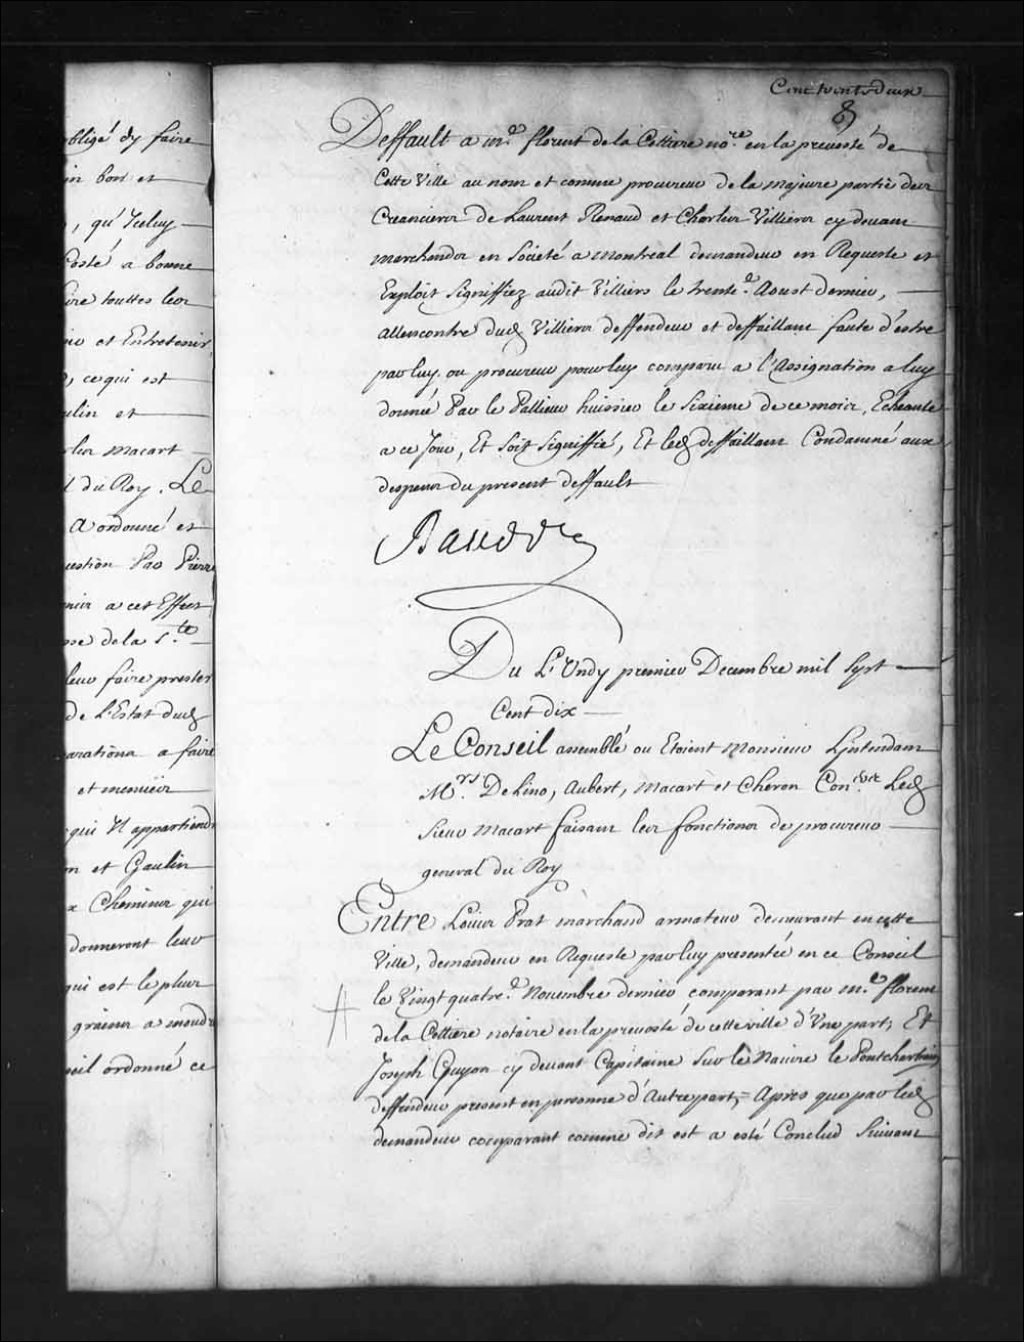 obligé dy faire
in bon et
, qu'Iceluy
Costé a bonne
ire touttes les
et Entretenir,
, ce qui est
ulin et
rles macart
du Roy. Le
A ordonné et
uestion Par Pierre
nir a cet Effect
de la s.te
leur faire prester
de L'Estat dud
arations a faire
et meusniers
qui Il appartiendr
n et Gaulin
x Chemins qui
donneront leur
qui est le plus
grains a moudr
seil ordonné ce
Cent trente deux
Deffault a m.e florent de la Cettiere no.re en la prevosté de
Cette Ville au nom et comme procureur de la majeure partie des
Creanciers de Laurent Renaud et Charles Villiers cy devant
marchands en Societé a montreal demandeur en Requeste et
Exploit Signiffiez audit Villiers le trente.e Aoust dernier,
allencontre dud Villiers deffendeur et deffaillant faute d'estre
par luy ou procureur pour luy comparu a l'Assignation a luy
donnée Par le Pallieur huissier le Sixieme de ce mois, Echeante
a ce Jour, Et Soit Signiffié, Et led deffaillant Condamné aux
despens du present deffault
Raudot
Du Lundy premier Decembre mil Sept
Cent dix
Le Conseil assemblé ou Etoient Monsieur L'Intendant
M.rs De Lino, Aubert, Macart et Cheron Con.ers Led
Sieur Macart faisant les fonctions de procureur
general du Roy
Entre Louis Prat marchand armateur demeurant en cette
Ville, demandeur en Requeste par luy presentée en ce Conseil
le Vingt quatre.e Novembre dernier comparant par m.e florent
de la Cettiere notaire en la prevosté de cette ville d'Une part, Et
Joseph Guyon cy devant Capitaine Sur le Navire le Pontchartrain
deffendeur present en personne d'Autre part, = Apres que par led
demandeur comparant comme dit est a esté Conclud Suivant